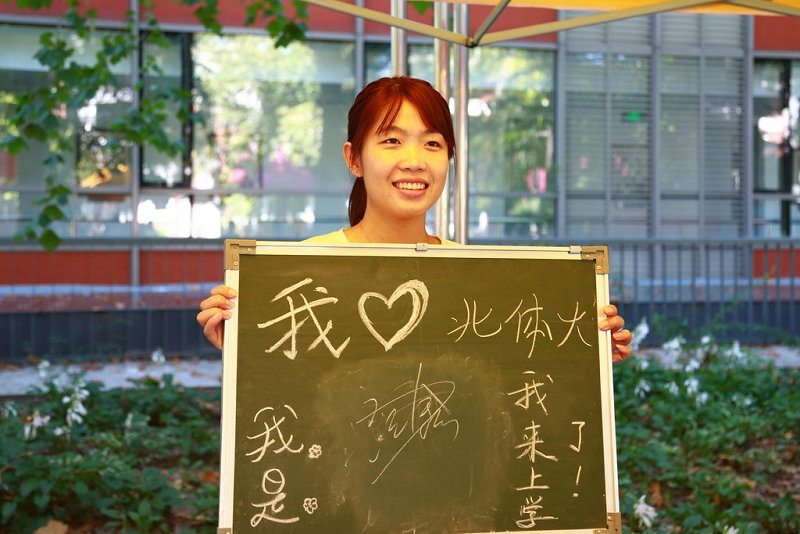 我♡北体大
我是
我来上学了！